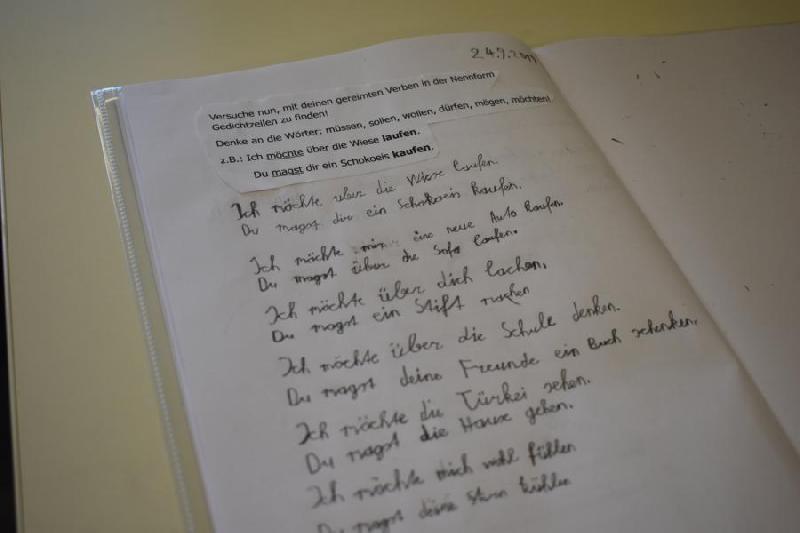 24.9.2019
Versuche nun, mit deinen gereimten Verben in der Nennform
Gedichtzeilen zu finden!
Denke an die Wörter: müssen, sollen, wollen, dürfen, mögen, möchten!
z.B.: Ich möchte über die Wiese laufen.
Du magst dir ein Schokoeis kaufen.
Ich möchte über die Wiese laufen.
Du magst dir ein Schokoeis kaufen.
Ich möchte mir eine neue Auto kaufen.
Du magst über die Sofa laufen.
Ich möchte über dich lachen,
Du magst ein Stift machen
Ich möchte über die Schule denken.
Du magst deine Freunde ein Buch schenken,
Ich möchte die Türkei sehen.
Du magst die Hause gehen.
Ich möchte mich wohl fühlen
Du magst deine Stirn kühlen